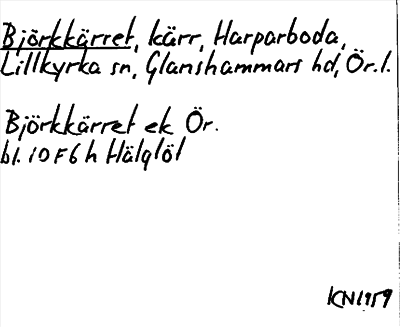 Björkkärret, kärr, Harparboda,
Lillkyrka sn, Glanshammars hd, Ör.l.
Björkkärret ek Ör.
bl. 10F6h Hälglöt
KN1959